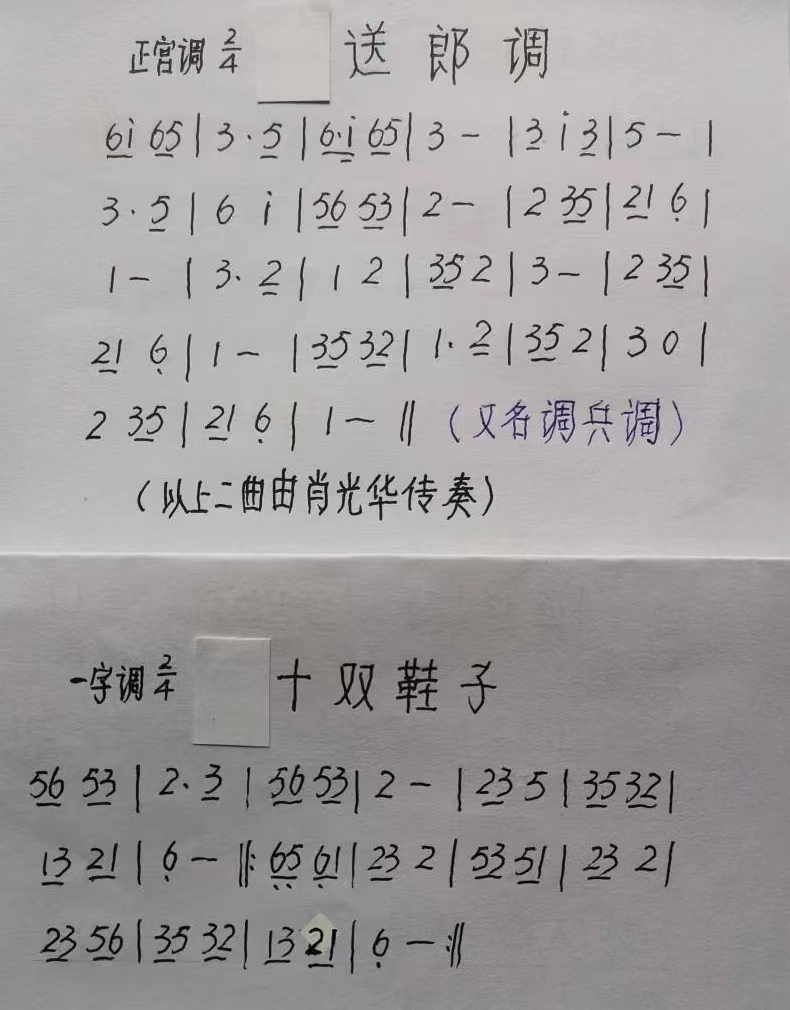 正宫调 2/4 送郎调
6i 65 | 3· 5 | 6·i 65 | 3 - | 3 i 3 | 5 - |
3· 5 | 6 i | 56 53 | 2 - | 2 35 | 21 6 |
1 - | 3· 2 | 1 2 | 35 2 | 3 - | 2 35 |
21 6 | 1 - | 35 32 | 1· 2 | 35 2 | 3 0 |
2 35 | 21 6 | 1 - ‖ (又名调兵调)
(以上二曲由肖光华传奏)
一字调 2/4 十双鞋子
56 53 | 2· 3 | 56 53 | 2 - | 23 5 | 35 32 |
13 21 | 6 - ‖: 65 61 | 23 2 | 53 51 | 23 2 |
23 56 | 35 32 | 13 21 | 6 - :‖